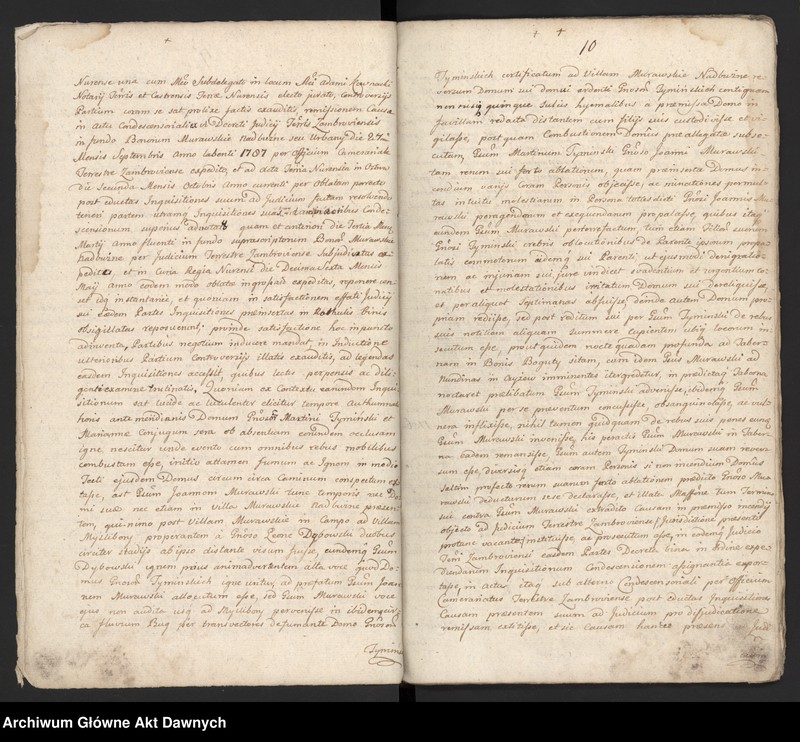 Nurense una cum Mco Subdelegato in locum Mci Adami
Notarij Tris et Castrensis Terræ Nurensis electo jurato, controversijs
Partium coram se sat prolixe factis exauditis, remissionem Causæ
in actu Condescensoriali ex vi Decreti Judicij Tertris Zambroviensis
in fundo Bonorum Murawskie nadbużne seu Urbany die
Mensis Septembris Anno labenti 1787 per Officium Camerariale
Terrestre Zambroviense expedito, et ad acta Tertria Nurensia in Ostrow
die Secunda Mensis Octobris Anno currenti per Oblatam porrecto
post eductas Inquisitiones suum ad Judicium factam resolvendo
teneri partem utramq Inquisitiones suas in actibus Conde-
scensionum superius adnotatis quam et anteriori die Tertia Mensis
Martij Anno fluenti in fundo suprascriptorum Bonor Murawskie
nadbużne per Judicium Terrestre Zambroviense Subjudicatus ex-
pedito, et in Curia Regia Nurensi die Decima Sexta Mensis
Maij anno eodem modo oblatæ ingrossari expeditas, reponere cen-
set idq instantanee, et quoniam in satisfactionem effati Judicij
sui eædem Partes Inquisitiones præinsertas in Rothulis binis
obsigillatas reposuerunt; proinde satisfactione hoc in puncto
adinventa, Partibus negotium inducere mandat, in Inductione
ulterioribus Partium Controversijs illatis exauditis, ad legendas
easdem Inquisitiones accessit quibus lectis perpensis ac dili-
genti examine trutinatis, Quoniam ex Contextu earundem Inqui-
sitionum sat lucide ac luculenter elicitur tempore Authumnali
horis ante meridianis Domum Gnosor Martini Tymiński et
Marianne Conjugum sera ob absentiam eorundem occlusam
igne, nescitur unde evento cum omnibus rebus mobilibus
combustam esse, initio attamen fumum ac Ignem in medio
Tecti ejusdem Domus circum circa Caminum conspectum ex-
tasse, ast Gsum Joannem Murawski tunc temporis nec Do-
mi suæ nec etiam in Villa Murawskie nadbużne præsen-
tem, quinimo post Villam Murawskie in Campo ad Villam
Myślibory properantem à Gnoso Leone Dybowski duobus
circiter stadijs ab ipso distante visum fuisse, eundemq Gsum
Dybowski ignem prius animadvertentem alta voce quod Do-
mus Gnosor Tymińskich igne uritur, ad præfatum Gsum Joan-
nem Murawski allocutum esse, sed Gsum Murawski voce
ejus non audita usq ad Myślibory pervenisse et ibidem
ca fluvium Bug per transvectores de fumante Domo Gnosor
Tymins
10
Tymińskich certificatum ad Villam Murawskie Nadbużne re-
versum Domum sui domui ardenti Gnosor Tymińskich contiguam
non nisi quinque Sulcis hyemalibus a præmissa Domo in
favillam redacta distantem cum filijs suis custodisse et vi-
gilasse, post quam Combustionem Domus præallegatæ subse-
cutam, Gsum Martinum Tyminski Gnoso Joanni Murawski
tam rerum sui furto ablationem, quam præinsertæ Domus in-
cendium varijs coram Personis objecisse, ac minationes permul-
tas intuitu molestiarum in Persona totius dicti Gnosi Joannis Mu-
rawski peragendarum et exequendarum propalasse, quibus itaq
eundem Gsum Murawski perterrefactum, tum etiam Filiam suam
Gnosi Tyminski crebris oblocutionibus de Parente ipsorum propa-
latis commotorum eidemq sui Parenti, ut ejusmodi denigratio-
nem ac injuriam sui jure vindicet svadentium et urgentium co-
natibus et molestationibus irritatum Domum sui dereliquisse,
et per aliquot Septimanas abfuisse, deinde autem Domum pro-
priam redijsse, sed post reditum sui per Gsum Tyminski de rebus
suis notitiam aliquam summere Cupientem ubiq locorum in-
secutum esse, prout quidem nocte quadam profunda ad Taber-
nam in Bonis Boguty sitam, eam idem Gsus Murawski ad
Nundinas in Czyżew imminentes itergrederetur, in prædictaq Taberna
noctaret prælibatum Gsum Tyminski advenisse, ibidemq Gsum
Murawski per se preventum concussisse, obsanguinolasse, ac vul-
nera inflixisse, nihil tamen quidquam de rebus suis penes eundem
Gsum Murawski invenisse, his peractis Gsum Murawski in Taber-
na eadem remansisse, Gsum autem Tyminski Domum suam rever-
sum esse, diversisq etiam coram Personis si non incendium Domus
saltem profecto rerum suarum furto ablationem prædicto Gnoso Mu-
rawski deducturum sese declarasse, et illato Maffonæ tum Termino
sui contra Gsum Murawski extradito Causam in præmisso incendij
objecto ad Judicium Terrestre Zambroviense Jurisdictione præsenti
protunc vacante instituisse, ac prosecutum esse, in eodemq Judicio
Trri Zambroviensi easdem Partes Decreta bina in ordine expe-
diendarum Inquisitionum Condescensionem assignantia expor-
tasse, in actu itaq sub alterno Condescensoriali per Officium
Camerariatus Terrestre Zambroviense post eductas Inquisitiones
Causam præsentem suum ad Judicium pro dijudicatione
remissam extitisse, et sic Causam hancce præsens
Archiwum Główne Akt Dawnych